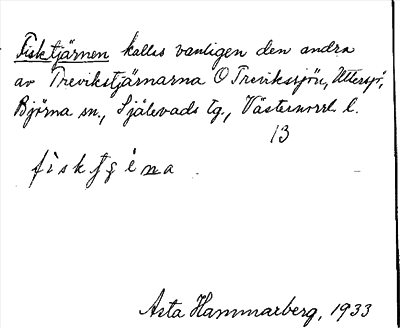 Fisktjärnen kallas vanligen den andra
av Trevikstjärnarna O Trevikssjön, Uttersjö,
Björna sn., Själevads tg., Västernorrl. l.
13
fisktjęna
Asta Hammarberg, 1933